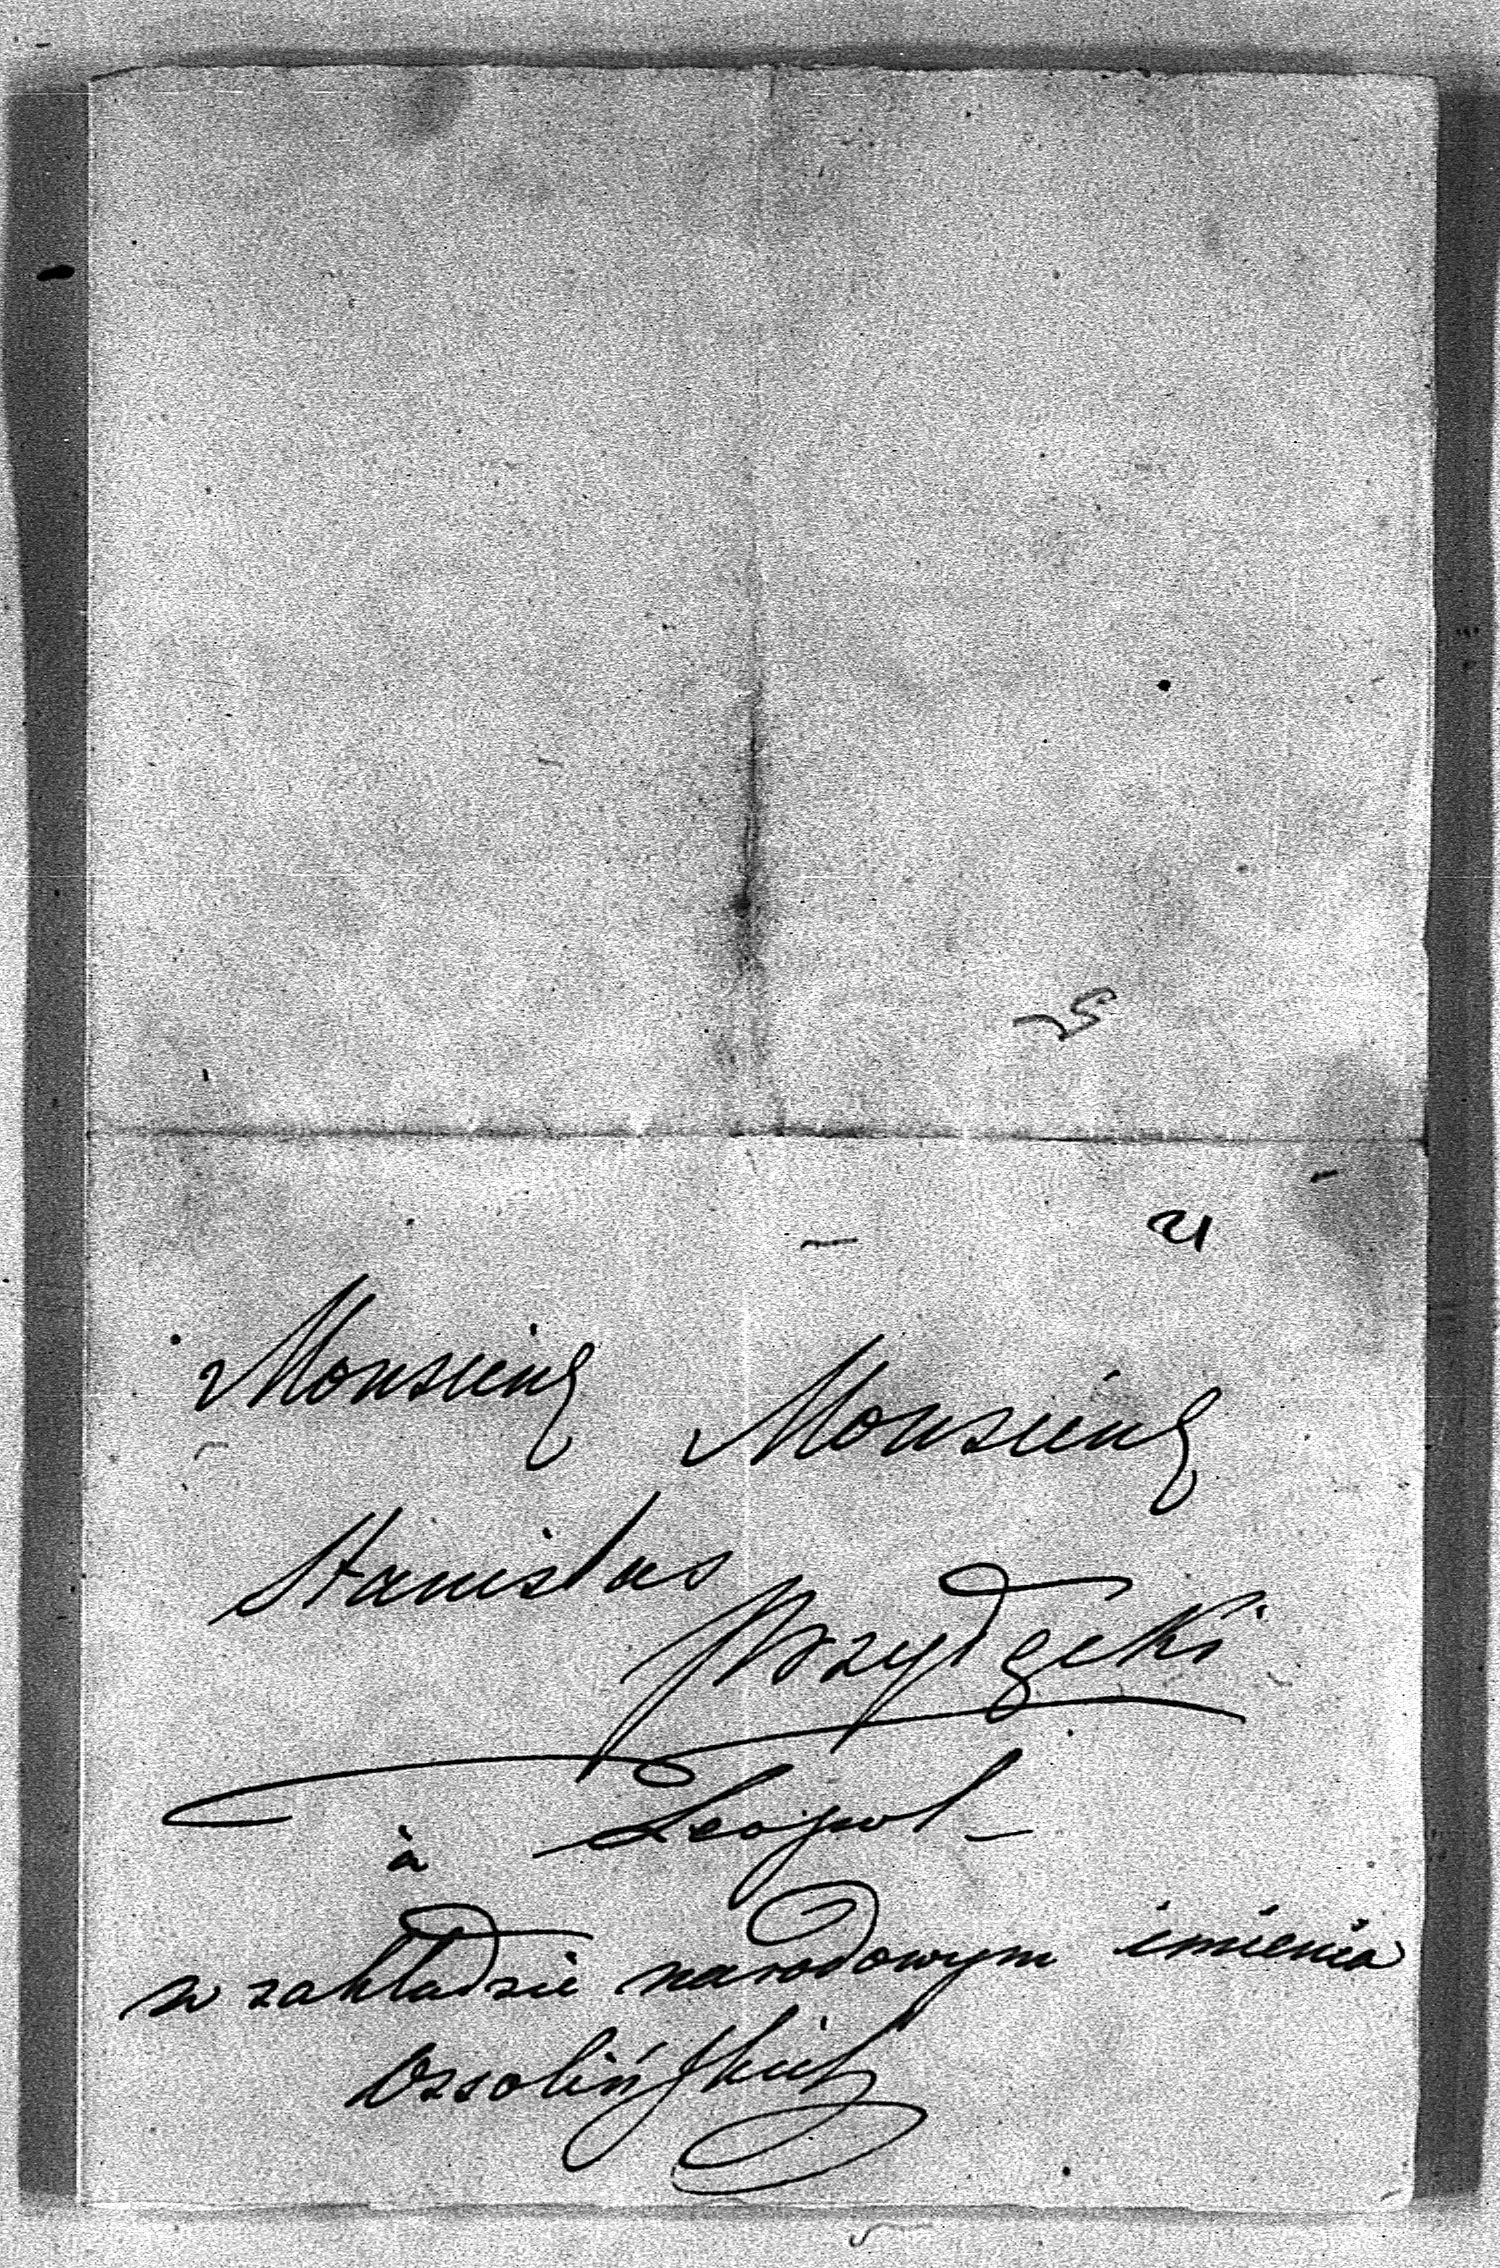 21
Monsieur Monsieur
Stanislas Przyłęcki
à Leopol
w zakładzie narodowym imienia
Ossolińskich